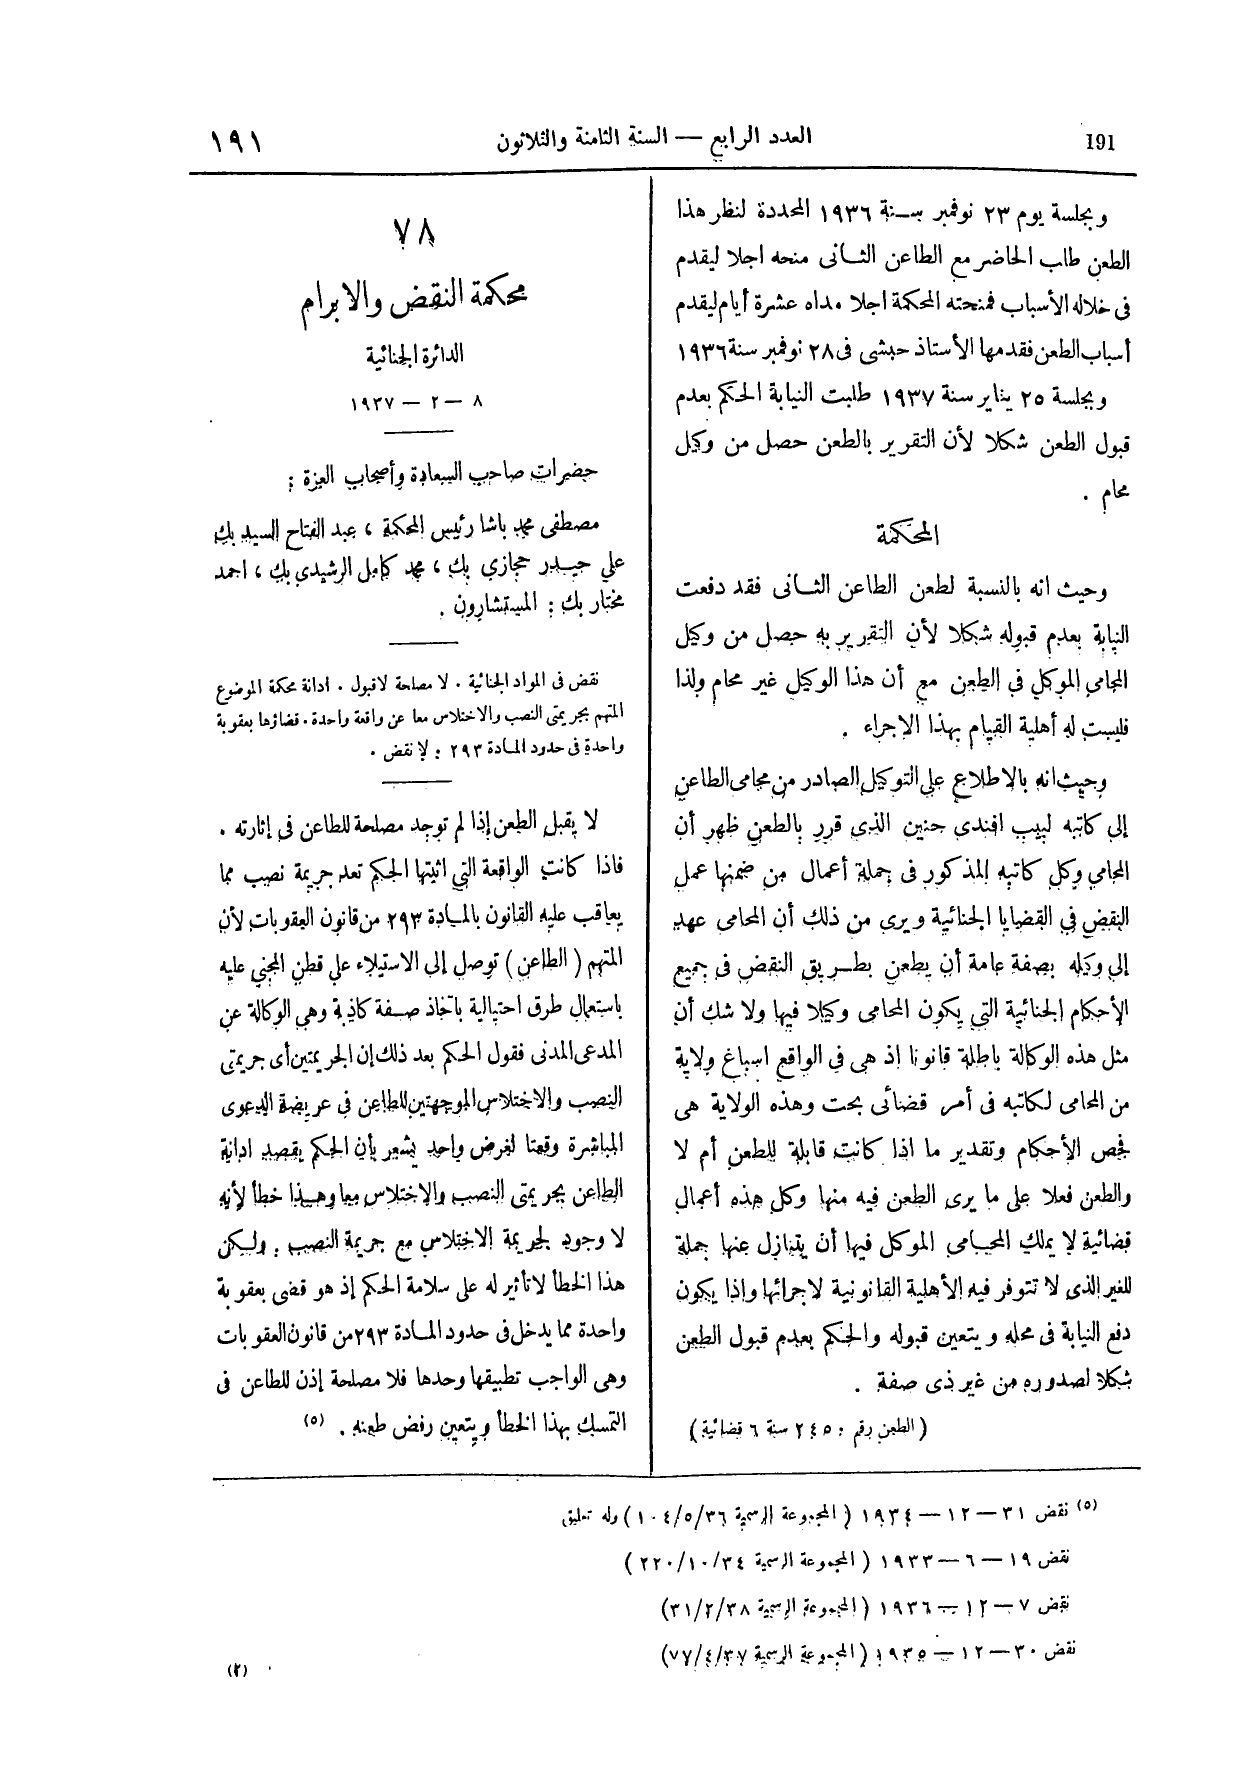 191
العدد الرابع — السنة الثامنة والثلاثون
١٩١
وبجلسة يوم ٢٣ نوفمبر سنة ١٩٣٦ المحددة لنظر هذا
الطعن طلب الحاضر مع الطاعن الثانى منحه اجلا ليقدم
فى خلاله الأسباب فمنحته المحكمة اجلا مداه عشرة أيام ليقدم
أسباب الطعن فقدمها الأستاذ حبشى فى ٢٨ نوفمبر سنة ١٩٣٦
وبجلسة ٢٥ يناير سنة ١٩٣٧ طلبت النيابة الحكم بعدم
قبول الطعن شكلا لأن التقرير بالطعن حصل من وكيل
محام .
المحكمة
وحيث انه بالنسبة لطعن الطاعن الثانى فقد دفعت
النيابة بعدم قبوله شكلا لأن التقرير به حصل من وكيل
المحامى الموكل فى الطعن مع أن هذا الوكيل غير محام ولذا
فليست له أهلية القيام بهذا الاجراء .
وحيث انه بالاطلاع على التوكيل الصادر من محامى الطاعن
إلى كاتبه لبيب افندى حنين الذى قرر بالطعن ظهر أن
المحامى وكل كاتبه المذكور فى جملة أعمال من ضمنها عمل
النقض فى القضايا الجنائية ويرى من ذلك أن المحامى عهد
إلى وكيله بصفة عامة أن يطعن بطريق النقض فى جميع
الأحكام الجنائية التي يكون المحامى وكيلا فيها ولا شك أن
مثل هذه الوكالة باطلة قانونا اذ هى فى الواقع اسباغ ولاية
من المحامى لكاتبه فى أمر قضائى بحت وهذه الولاية هى
فحص الأحكام وتقدير ما اذا كانت قابلة للطعن أم لا
والطعن فعلا على ما يرى الطعن فيه منها وكل هذه أعمال
قضائية لا يملك المحامى الموكل فيها أن يتنازل عنها جملة
للغير الذى لا تتوفر فيه الأهلية القانونية لاجرائها واذا يكون
دفع النيابة فى محله ويتعين قبوله والحكم بعدم قبول الطعن
شكلا لصدوره من غير ذى صفة .
( الطعن رقم ٢٤٥٠ سنة ٦ قضائية )
٧٨
محكمة النقض والابرام
الدائرة الجنائية
٨ — ٢ — ١٩٣٧
حضرات صاحب السعادة وأصحاب العزة :
مصطفى محمد باشا رئيس المحكمة ، عبد الفتاح السيد بك
على حيدر حجازي بك ، محمد كامل الرشيدى بك ، احمد
مختار بك : المستشارون .
نقض فى المواد الجنائية . لا مصلحة لا قبول . ادانة محكمة الموضوع
المتهم بجريمتى النصب والاختلاس معا عن واقعة واحدة . قضاؤها بعقوبة
واحدة فى حدود المادة ٢٩٣ . لا نقض .
لا يقبل الطعن إذا لم توجد مصلحة للطاعن فى إثارته .
فاذا كانت الواقعة التي اثبتها الحكم تعد جريمة نصب مما
يعاقب عليه القانون بالمادة ٢٩٣ من قانون العقوبات لأن
المتهم ( الطاعن ) توصل إلى الاستيلاء على قطن المجنى عليه
باستعمال طرق احتيالية باتخاذ صفة كاذبة وهى الوكالة عن
المدعى المدنى فقول الحكم بعد ذلك إن الجريمتين أى جريمتى
النصب والاختلاس الموجهتين للطاعن فى عريضة الدعوى
المباشرة وقعتا لغرض واحد يشعر بأن الحكم يقصد ادانة
الطاعن بجريمتى النصب والاختلاس معا وهذا خطأ لأنه
لا وجود لجريمة الاختلاس مع جريمة النصب . ولكن
هذا الخطأ لا تأثير له على سلامة الحكم إذ هو قضى بعقوبة
واحدة مما يدخل فى حدود المادة ٢٩٣ من قانون العقوبات
وهى الواجب تطبيقها وحدها فلا مصلحة إذن للطاعن فى
التمسك بهذا الخطأ ويتعين رفض طعنه . (٥)
(٥) نقض ٣١ — ١٢ — ١٩٣٤ ( المجموعة الرسمية ١٠٤/٥/٣٦ ) وله تعليق
نقض ١٩ — ٦ — ١٩٣٣ ( المجموعة الرسمية ٢٢٠/١٠/٣٤ )
نقض ٧ — ١٢ — ١٩٣٦ ( المجموعة الرسمية ٣١/٢/٣٨ )
نقض ٣٠ — ١٢ — ١٩٣٥ ( المجموعة الرسمية ٧٧/٤/٣٧ )
(٢)